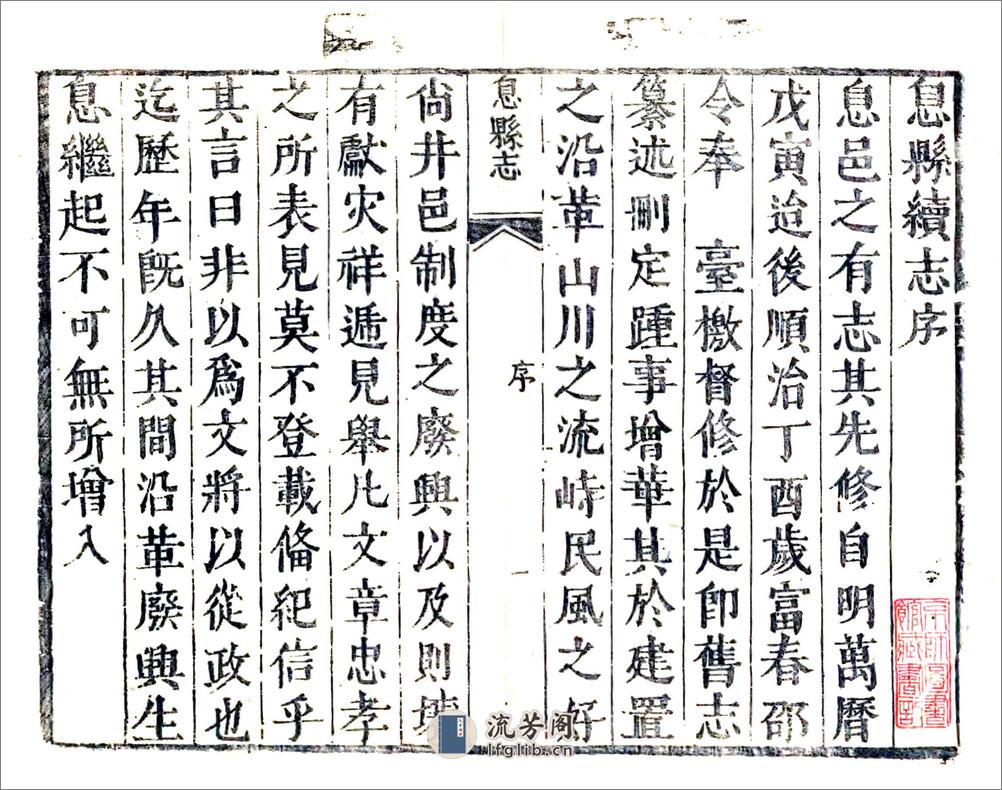 息縣續志序
息邑之有志其先修自明萬曆
戊寅迨後順治丁酉歲富春邵
令奉　臺檄督修於是卽舊志
纂述刪定踵事增華其於建置
之沿革山川之流峙民風之好
息縣志
序
一
尙井邑制度之廢興以及則壤
有獻灾祥遞見舉凡文章忠孝
之所表見莫不登載俻紀信乎
其言曰非以爲文將以從政也
迄歷年旣久其間沿革廢興生
息繼起不可無所增入
京師圖書
館藏書記
流芳阁
lfglib.cn